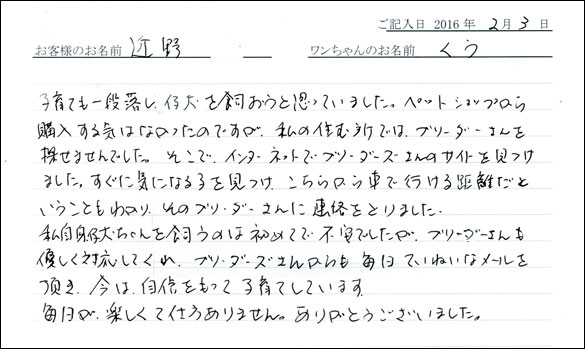 ご記入日 2016 年 2 月 3 日
お客様のお名前 近野 ワンちゃんのお名前 くう
子育ても一段落し、仔犬を飼おうと思っていました。ペットショップから
購入する気はなかったのですが、私の住む所では、ブリーダーさんを
探せませんでした。そこで、インターネットでブリーダーズさんのサイトを見つけ
ました。すぐに気になる子を見つけ、こちらから車で行ける距離だと
いうこともわかり、そのブリーダーさんに連絡をとりました。
私自身仔犬ちゃんを飼うのは初めてで不安でしたが、ブリーダーさんも
優しく対応してくれ、ブリーダーズさんからも毎日ていねいなメールを
頂き、今は、自信をもって子育てしています。
毎日が、楽しくて仕方ありません。ありがとうございました。